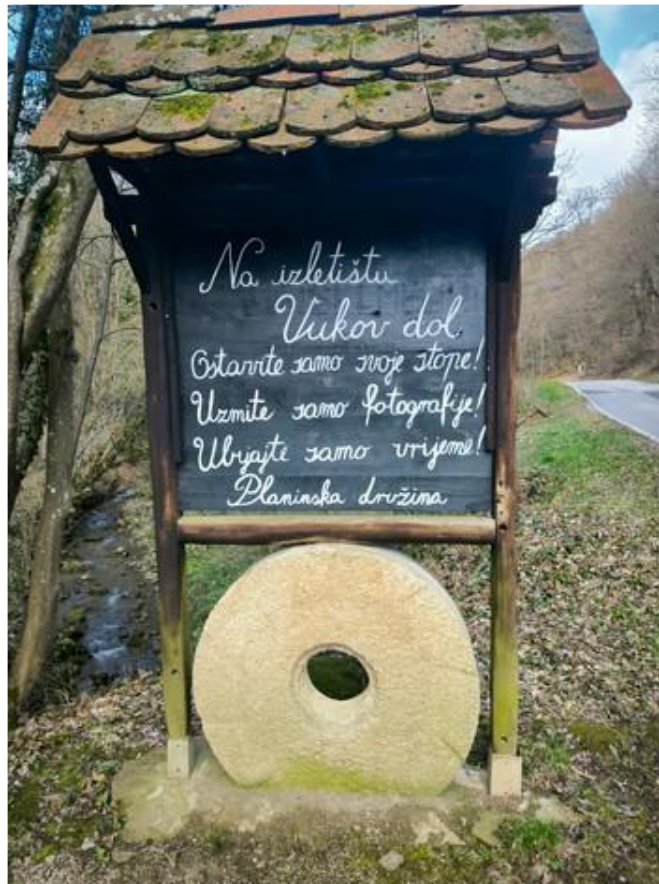 Na izletištu
Vukov dol
Ostavite samo svoje stope!
Uzmite samo fotografije!
Ubijajte samo vrijeme!
Planinska družina